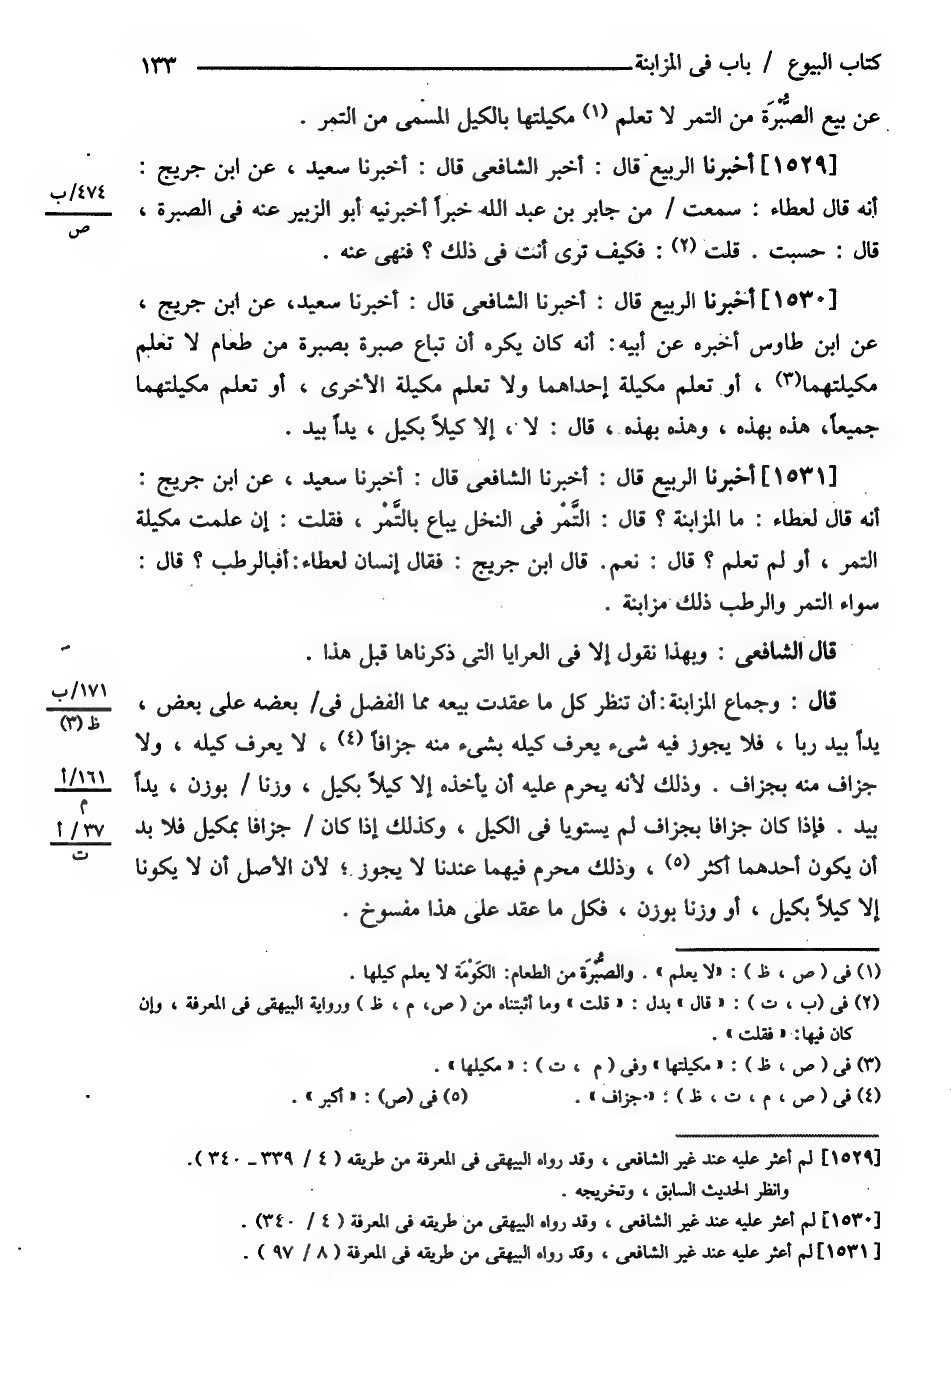 كتاب البيوع / باب فى المزابنة ــــــــ ١٣٣
عن بيع الصُّبْرَة من التمر لا تعلم (١) مكيلتها بالكيل المسمى من التمر .
[١٥٢٩] أخبرنا الربيع قال : أخبر الشافعى قال : أخبرنا سعيد ، عن ابن جريج :
أنه قال لعطاء : سمعت / من جابر بن عبد الله خبراً أخبرنيه أبو الزبير عنه فى الصبرة ،
٤٧٤/ب
ص
قال : حسبت . قلت (٢) : فكيف ترى أنت فى ذلك ؟ فنهى عنه .
[١٥٣٠] أخبرنا الربيع قال : أخبرنا الشافعى قال : أخبرنا سعيد، عن ابن جريج ،
عن ابن طاوس أخبره عن أبيه: أنه كان يكره أن تباع صبرة بصبرة من طعام لا تعلم
مكيلتهما(٣) ، أو تعلم مكيلة إحداهما ولا تعلم مكيلة الأخرى ، أو تعلم مكيلتهما
جميعاً، هذه بهذه ، وهذه بهذه ، قال : لا ، إلا كيلاً بكيل ، يداً بيد .
[١٥٣١] أخبرنا الربيع قال : أخبرنا الشافعى قال : أخبرنا سعيد ، عن ابن جريج :
أنه قال لعطاء : ما المزابنة ؟ قال : التَّمْر فى النخل يباع بالتَّمْر ، فقلت : إن علمت مكيلة
التمر ، أو لم تعلم ؟ قال : نعم. قال ابن جريج : فقال إنسان لعطاء:أفبالرطب ؟ قال :
سواء التمر والرطب ذلك مزابنة .
قال الشافعى : وبهذا نقول إلا فى العرايا التى ذكرناها قبل هذا .
قال : وجماع المزابنة:أن تنظر كل ما عقدت بيعه مما الفضل فى/ بعضه على بعض ،
١٧١/ب
ظ (٣)
يداً بيد ربا ، فلا يجوز فيه شىء يعرف كيله بشىء منه جزافاً (٤) ، لا يعرف كيله ، ولا
جزاف منه بجزاف . وذلك لأنه يحرم عليه أن يأخذه إلا كيلاً بكيل ، وزنا / بوزن ، يداً
١٦١/أ
م
بيد . فإذا كان جزافا بجزاف لم يستويا فى الكيل ، وكذلك إذا كان / جزافا بمكيل فلا بد
٣٧/ أ
ت
أن يكون أحدهما أكثر (٥) ، وذلك محرم فيهما عندنا لا يجوز ؛ لأن الأصل أن لا يكونا
إلا كيلاً بكيل ، أو وزنا بوزن ، فكل ما عقد على هذا مفسوخ .
(١) فى ( ص ، ظ ) : «لا يعلم» . والصُّبْرَة من الطعام: الكَوْمَة لا يعلم كيلها .
(٢) فى (ب ، ت ) : « قال » بدل : « قلت » وما أثبتناه من ( ص، م ، ظ ) ورواية البيهقى فى المعرفة ، وإن
كان فيها: « فقلت » .
(٣) فى ( ص ، ظ ) : « مكيلتها » وفى ( م ، ت ) : « مكيلها » .
(٤) فى ( ص ، م ، ت ، ظ ) : «جزاف» . (٥) فى (ص) : « أكبر » .
[١٥٢٩] لم أعثر عليه عند غير الشافعى ، وقد رواه البيهقى فى المعرفة من طريقه ( ٤ / ٣٣٩ ــ ٣٤٠ ).
وانظر الحديث السابق ، وتخريجه .
[١٥٣٠] لم أعثر عليه عند غير الشافعى ، وقد رواه البيهقى من طريقه فى المعرفة ( ٤ / ٣٤٠) .
[ ١٥٣١] لم أعثر عليه عند غير الشافعى ، وقد رواه البيهقى من طريقه فى المعرفة ( ٨ / ٩٧ ) .